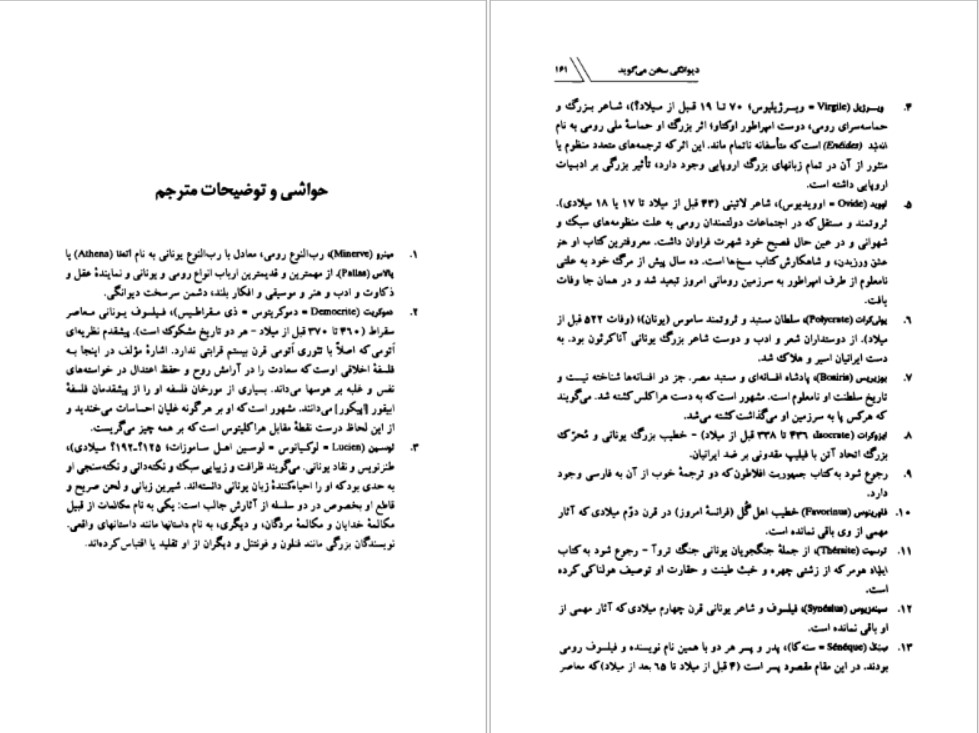 حواشی و توضیحات مترجم
۱. مینرو (Minerve)، رب‌النوع رومی، معادل با رب‌النوع یونانی به نام آتنا (Athena) یا
پالاس (Pallas). از مهمترین و قدیمترین ارباب انواع رومی و یونانی و نمایندهٔ عقل و
ذکاوت و ادب و هنر و موسیقی و افکار بلند، دشمن سرسخت دیوانگی.
۲. دموکریت (Democrite = دموکریتوس = ذی مقراطیس)، فیلسوف یونانی معاصر
سقراط (۴۶۰ تا ۳۷۰ قبل از میلاد - هر دو تاریخ مشکوک است). پیشقدم نظریه‌ای
اَتومی که اصلاً با تئوری اَتومی قرن بیستم قرابتی ندارد. اشارهٔ مؤلف در اینجا به
فلسفهٔ اخلاقی اوست که سعادت را در آرامش روح و حفظ اعتدال در خواسته‌های
نفس و غلبه بر هوسها می‌داند. بسیاری از مورخان فلسفه او را از پیشقدمان فلسفهٔ
ابیقور [اپیکور] می‌دانند. مشهور است که او بر هرگونه غلیان احساسات می‌خندید و
از این لحاظ درست نقطهٔ مقابل هراکلیتوس است که بر همه چیز می‌گریست.
۳. لوسین (Lucien = لوکیانوس = لوسین اهل ساموزات؛ ۱۲۵؟-۱۹۲؟ میلادی)،
طنزنویس و نقاد یونانی. می‌گویند ظرافت و زیبایی سبک و نکته‌دانی و نکته‌سنجی او
به حدی بود که او را احیاءکنندهٔ زبان یونانی دانسته‌اند. شیرین زبانی و لحن صریح و
قاطع او بخصوص در دو سلسله از آثارش جالب است: یکی به نام مکالمات از قبیل
مکالمهٔ خدایان و مکالمهٔ مردگان، و دیگری، به نام داستانها مانند داستانهای واقعی.
نویسندگان بزرگی مانند فنلون و فونتنل و دیگران از او تقلید یا اقتباس کرده‌اند.
دیوانگی سخن می‌گوید ۱۶۱
۴. ویرژیل (Virgile = ویرژیلیوس؛ ۷۰ تا ۱۹ قبل از میلاد؟)، شاعر بزرگ و
حماسه‌سرای رومی، دوست امپراطور اوکتاو؛ اثر بزرگ او حماسهٔ ملی رومی به نام
انه‌ئید (Enéides) است که متأسفانه ناتمام ماند. این اثر که ترجمه‌های متعدد منظوم یا
منثور از آن در تمام زبانهای بزرگ اروپایی وجود دارد، تأثیر بزرگی بر ادبیات
اروپایی داشته است.
۵. اووید (Ovide = اوویدیوس)، شاعر لاتینی (۴۳ قبل از میلاد تا ۱۷ یا ۱۸ میلادی).
ثروتمند و مستقل که در اجتماعات دولتمندان رومی به علت منظومه‌های سبک و
شهوانی و در عین حال فصیح خود شهرت فراوان داشت. معروفترین کتاب او هنر
عشق ورزیدن، و شاهکارش کتاب مسخ‌ها است. ده سال پیش از مرگ خود به علتی
نامعلوم از طرف امپراطور به سرزمین رومانی امروز تبعید شد و در همان جا وفات
یافت.
۶. پولی‌کرات (Polycrate)، سلطان مستبد و ثروتمند ساموس (یونان)؛ (وفات ۵۲۲ قبل از
میلاد). از دوستداران شعر و ادب و دوست شاعر بزرگ یونانی آناکرئون بود. به
دست ایرانیان اسیر و هلاک شد.
۷. بوزیریس (Bosiris)، پادشاه افسانه‌ای و مستبد مصر. جز در افسانه‌ها شناخته نیست و
تاریخ سلطنت او نامعلوم است. مشهور است که به دست هراکلس کشته شد. می‌گویند
که هرکس پا به سرزمین او می‌گذاشت کشته می‌شد.
۸. ایزوکرات (Isocrate، ۴۳۶ تا ۳۳۸ قبل از میلاد) - خطیب بزرگ یونانی و مُحرّک
بزرگ اتحاد آتن با فیلیپ مقدونی بر ضد ایرانیان.
۹. رجوع شود به کتاب جمهوریت افلاطون که دو ترجمهٔ خوب از آن به فارسی وجود
دارد.
۱۰. فاورینوس (Favorinus) خطیب اهل گُل (فرانسهٔ امروز) در قرن دوّم میلادی که آثار
مهمی از وی باقی نمانده است.
۱۱. ترسیت (Théraite)، از جملهٔ جنگجویان یونانی جنگ تروآ - رجوع شود به کتاب
ایلیاد هومر که از زشتی چهره و خبث طینت و حقارت او توصیف هولناکی کرده
است.
۱۲. سینه‌زیوس (Synésius)، فیلسوف و شاعر یونانی قرن چهارم میلادی که آثار مهمی از
او باقی نمانده است.
۱۳. سِنِک (Sénéque = سنه‌کا)، پدر و پسر هر دو با همین نام نویسنده و فیلسوف رومی
بودند. در این مقام مقصود پسر است (۴ قبل از میلاد تا ۶۵ بعد از میلاد) که معاصر